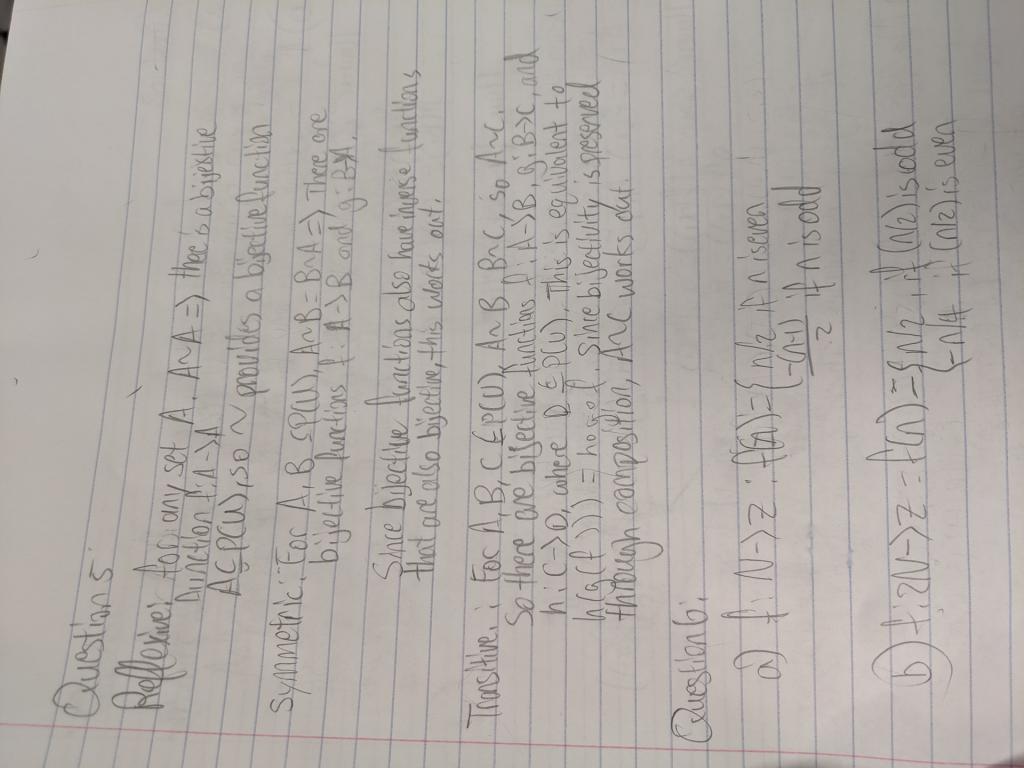 Question 5:
Reflexive: for any set A, A~A => there is a bijective
function f: A->A
A ⊆ P(U), so ~ provides a bijective function
Symmetric: For A, B ⊆ P(U), A~B = B~A => There are
bijective functions f: A->B and g: B->A.
Since bijective functions also have inverse functions
that are also bijective, this works out.
Transitive: For A, B, C ⊆ P(U), A~B, B~C, so A~C.
So there are bijective functions f: A->B, g: B->C, and
h: C->D, where D ⊆ P(U). This is equivalent to
h(g(f))) = h∘g∘f. Since bijectivity is preserved
through composition, A~C works out.
Question 6:
a) f: N->Z : f(n) = { n/2 if n is even
{ -(n+1)/2 if n is odd
b) f: 2N->Z = f(n) = { n/2 if (n/2) is odd
{ -n/4 if (n/2) is even